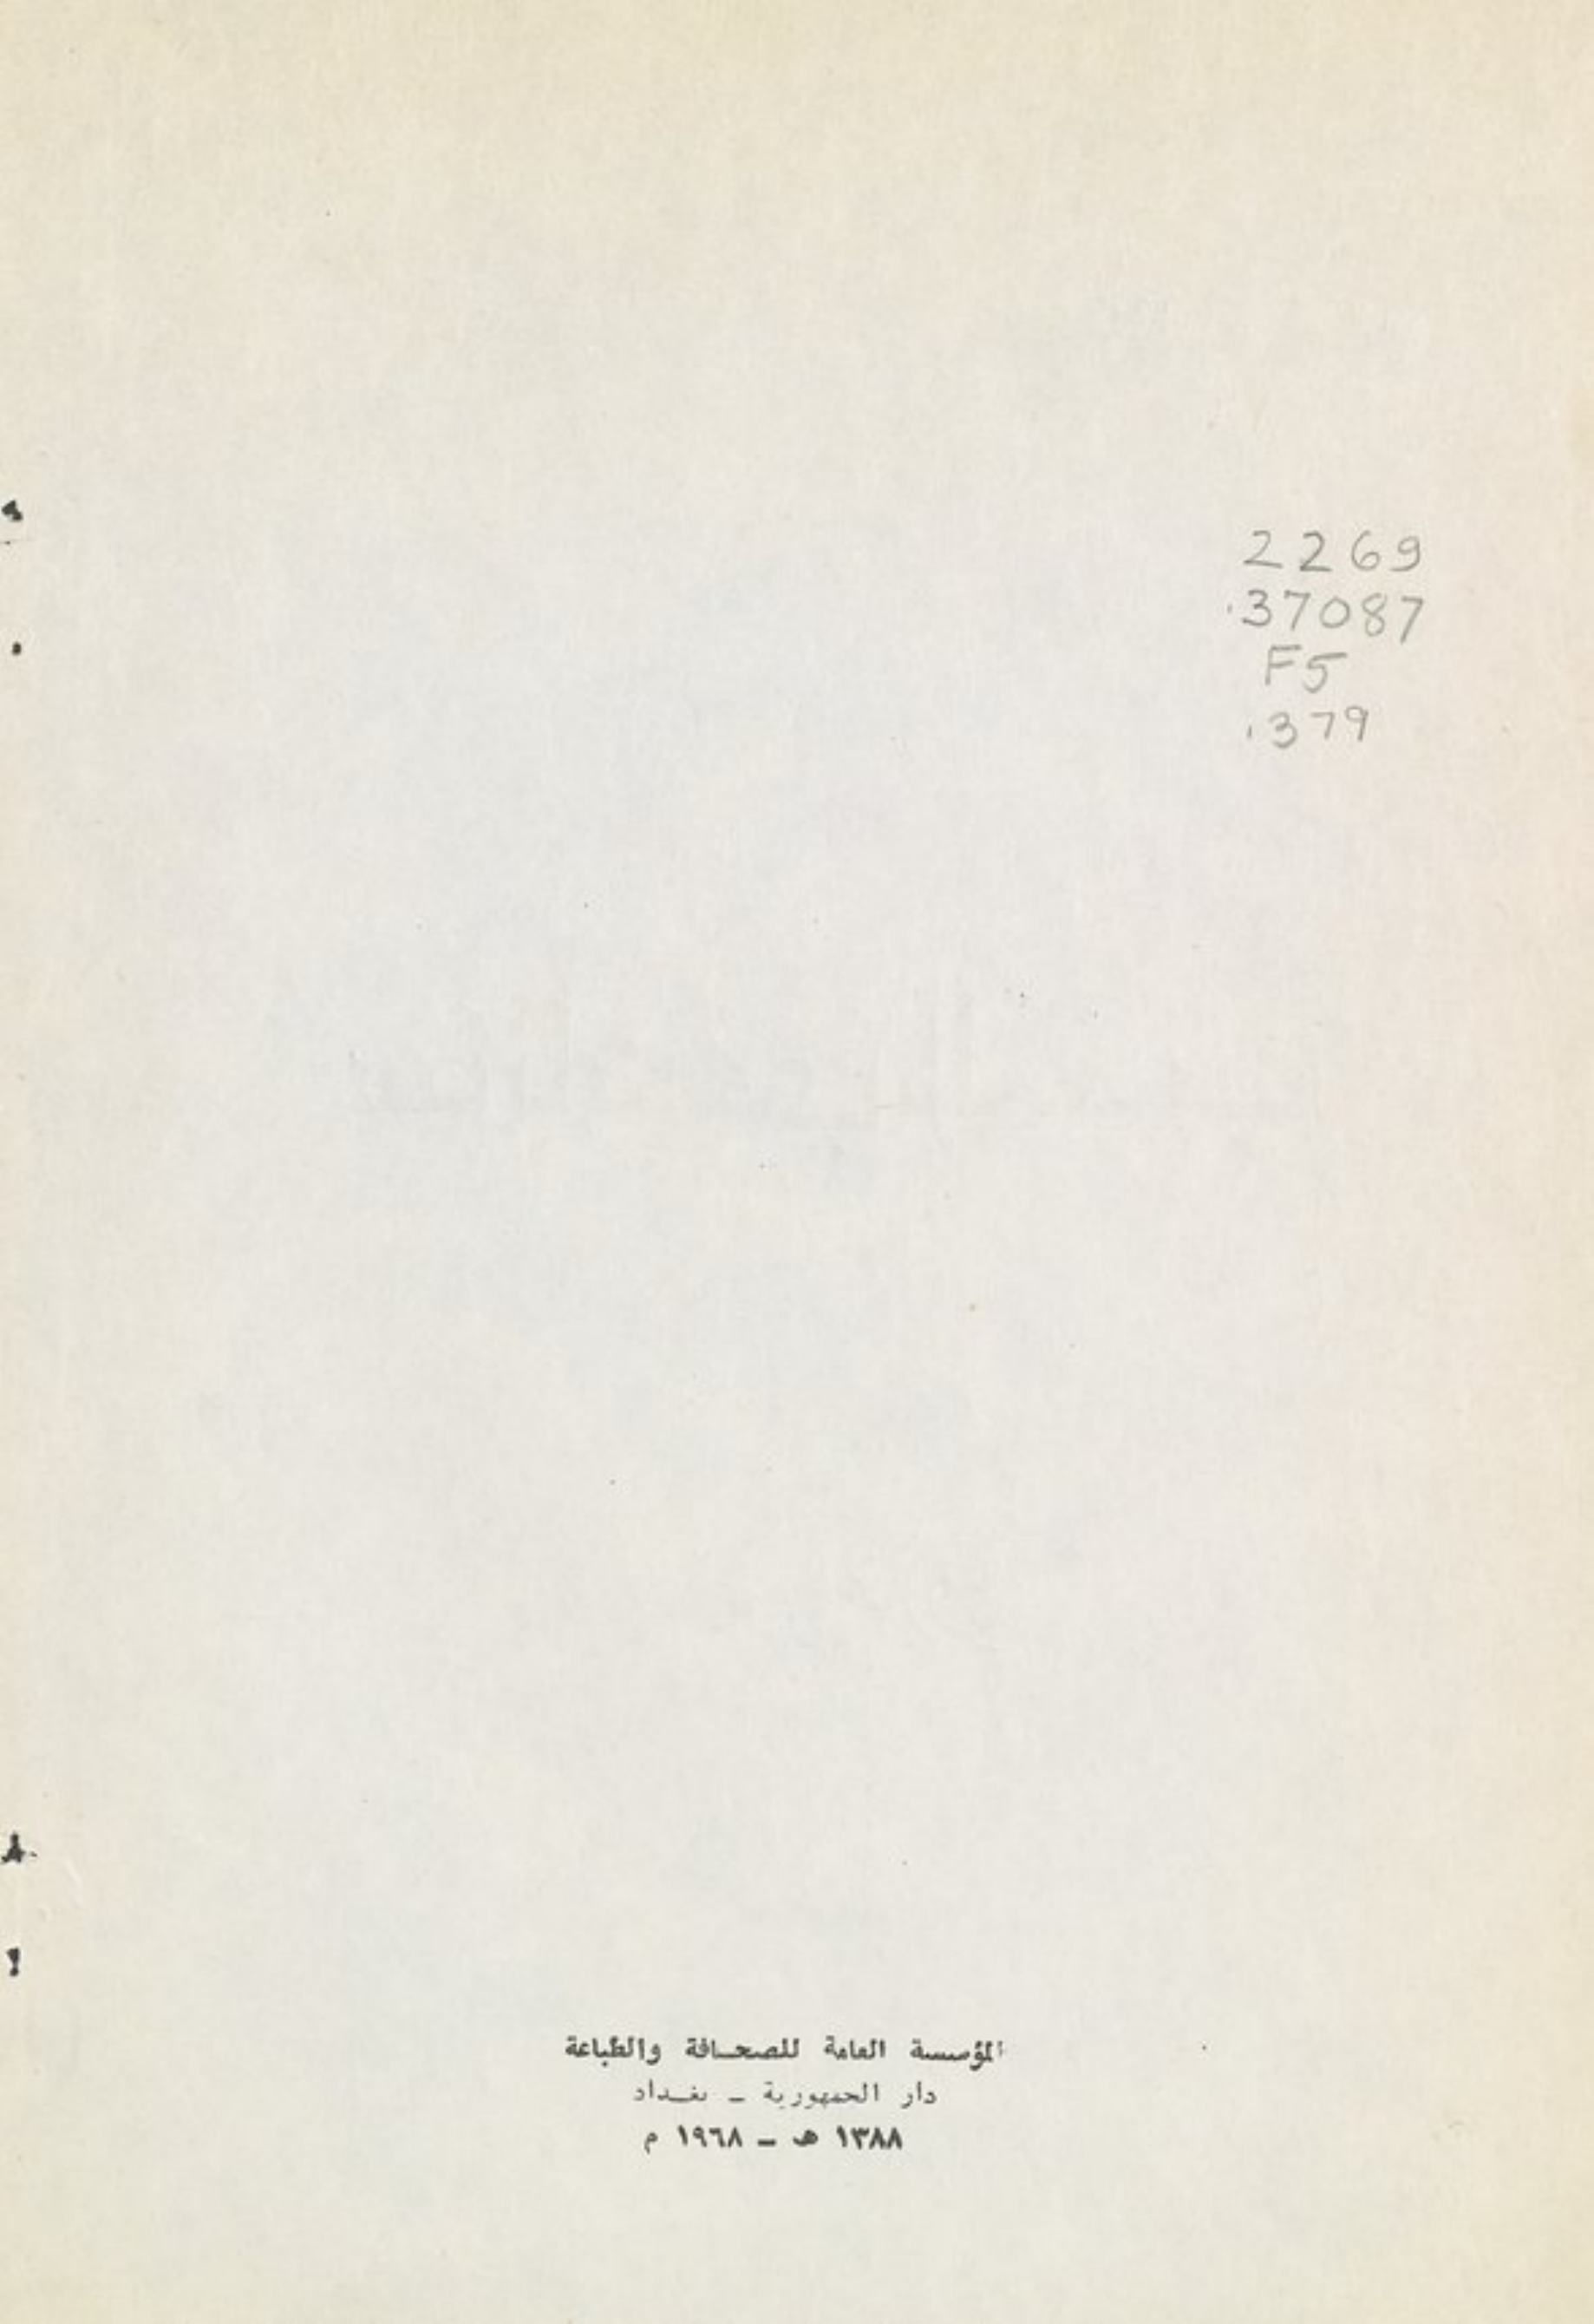 2269
.37087
F5
.379
المؤسسة العامة للصحافة والطباعة
دار الجمهورية ـ بغداد
١٣٨٨ هـ ـ ١٩٦٨ م